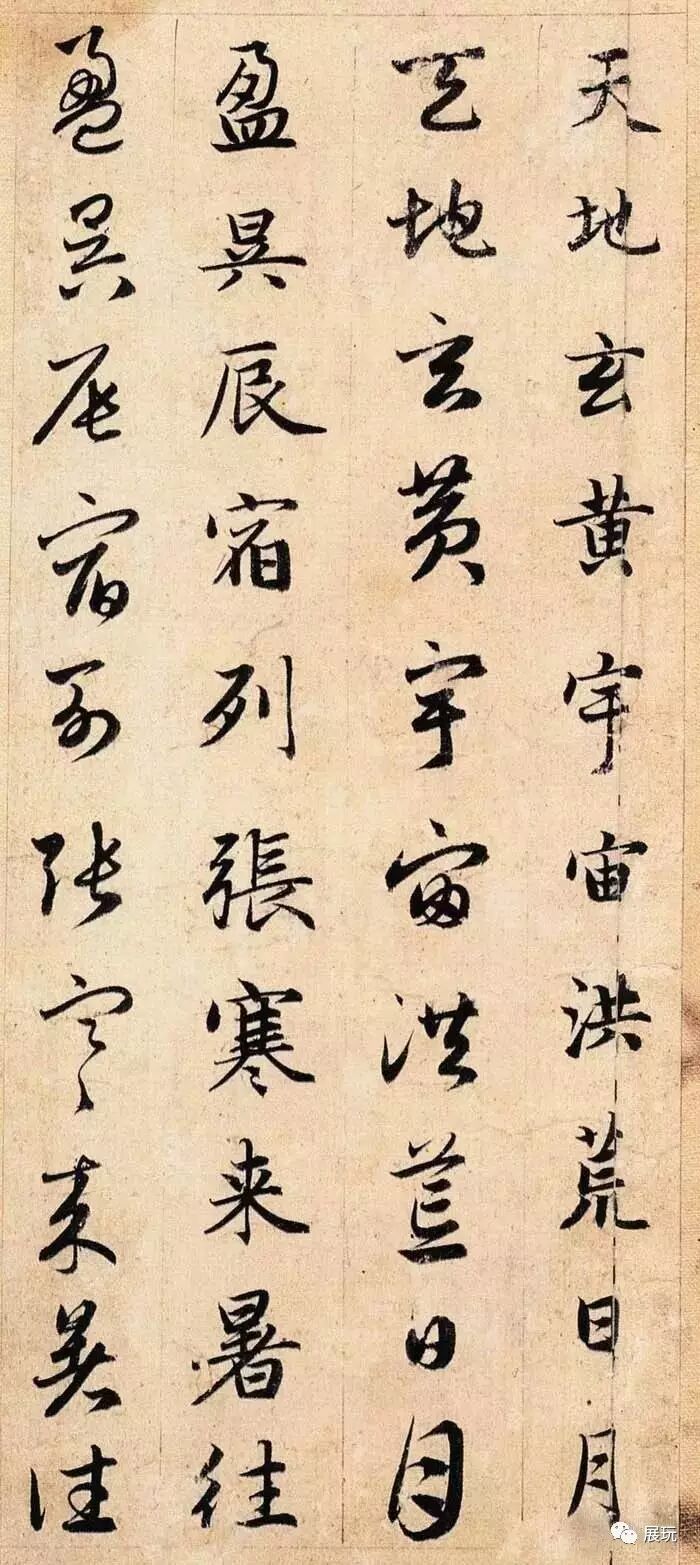 天地玄黄宇宙洪荒日月
天地玄黄宇宙洪荒日月
盈昃辰宿列張寒来暑往
盈昃辰宿列張寒来暑往
展玩